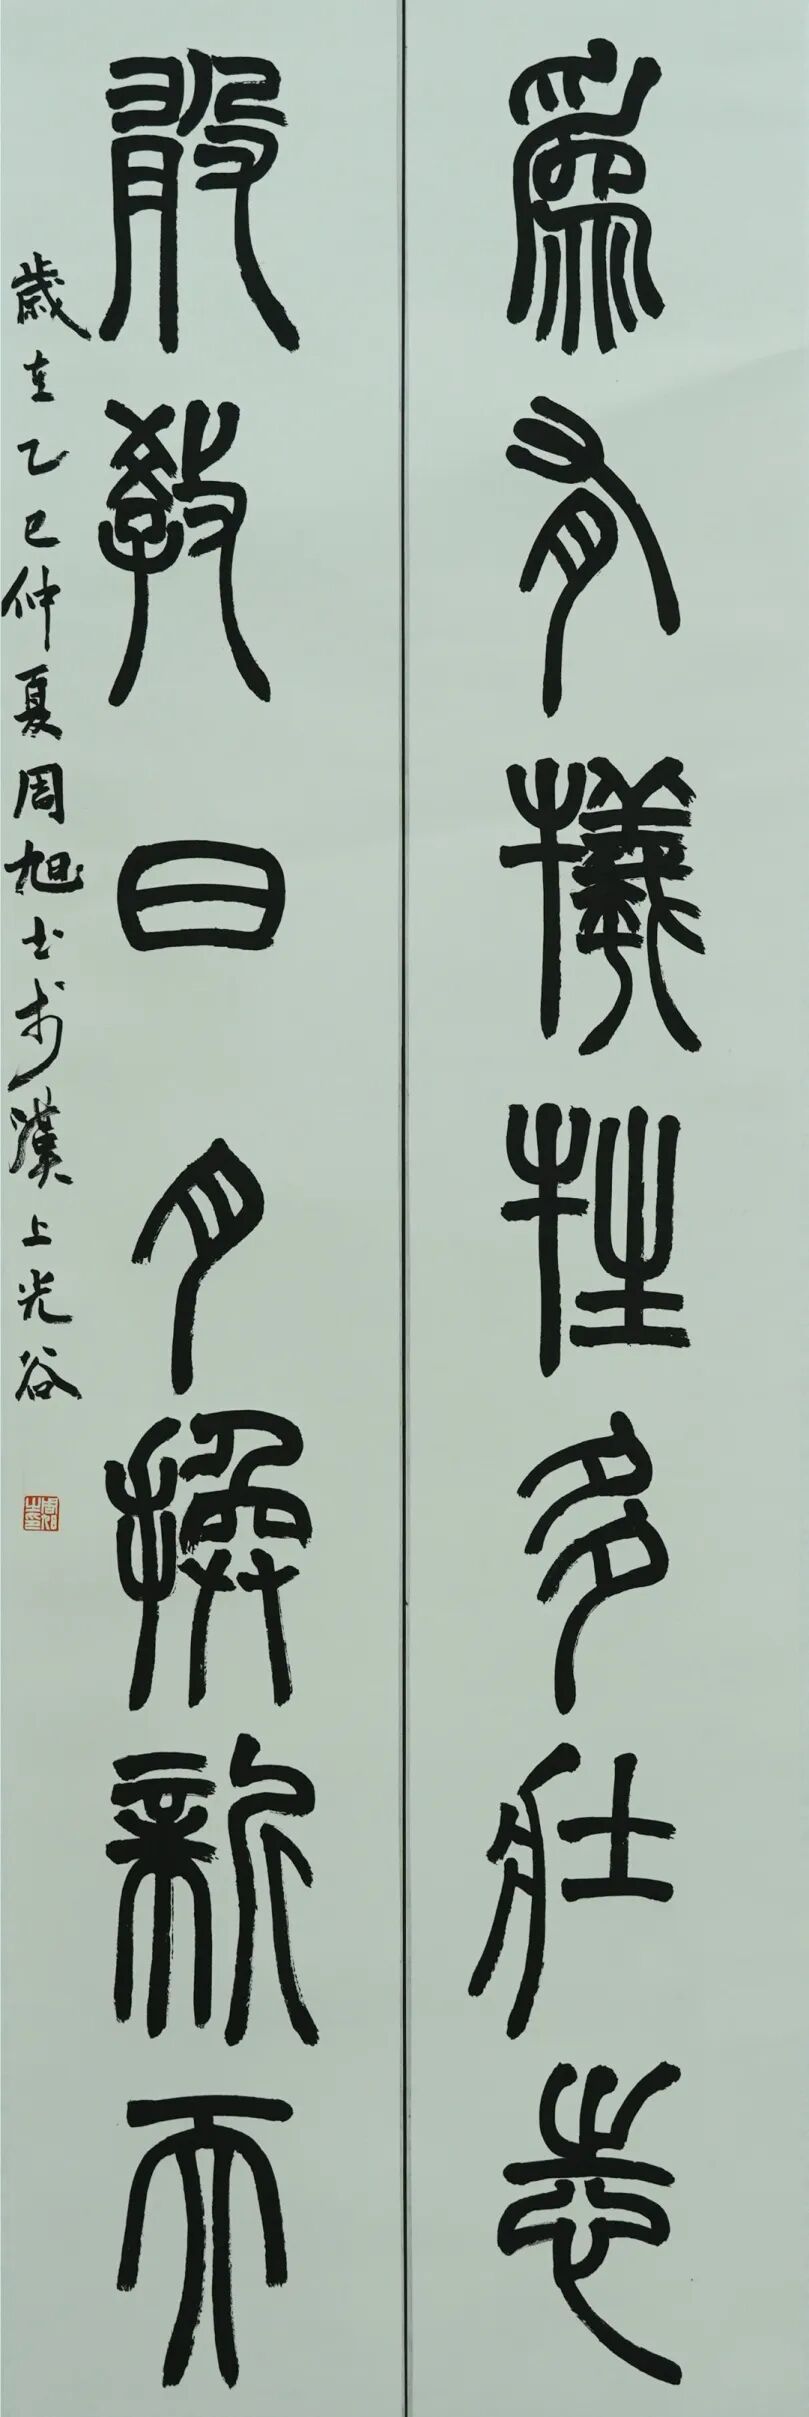 為有犧牲多壯志
敢教日月換新天
歲在乙巳仲夏周旭書於漢上光谷